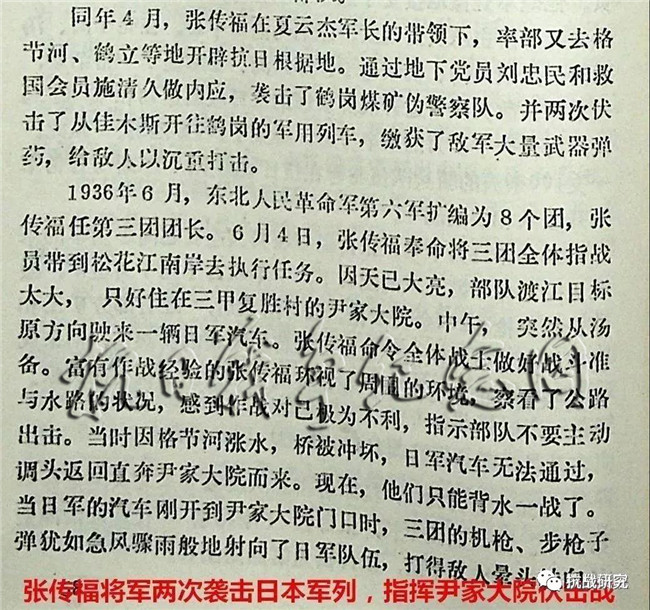 同年4月，张传福在夏云杰军长的带领下，率部又去格
节河、鹤立等地开辟抗日根据地。通过地下党员刘忠民和救
国会员施清久做内应，袭击了鹤岗煤矿伪警察队。并两次伏
击了从佳木斯开往鹤岗的军用列车，缴获了敌军大量武器弹
药，给敌人以沉重打击。
1936年6月，东北人民革命军第六军扩编为8个团，张
传福任第三团团长。6月4日，张传福奉命将三团全体指战
员带到松花江南岸去执行任务。因天已大亮，部队渡江目标
太大，只好住在三甲复胜村的尹家大院。中午，突然从汤
原方向驶来一辆日军汽车。张传福命令全体战士做好战斗准
备。富有作战经验的张传福环视了周围的环境，察看了公路
与水路的状况，感到作战对己极为不利，指示部队不要主动
出击。当时因格节河涨水，桥被冲坏，日军汽车无法通过，
调头返回直奔尹家大院而来。现在，他们只能背水一战了。
当日军的汽车刚开到尹家大院门口时，三团的机枪、步枪子
弹犹如急风骤雨般地射向了日军队伍，打得敌人晕头
张传福将军两次袭击日本军列，指挥尹家大院伏击战
抗战研究